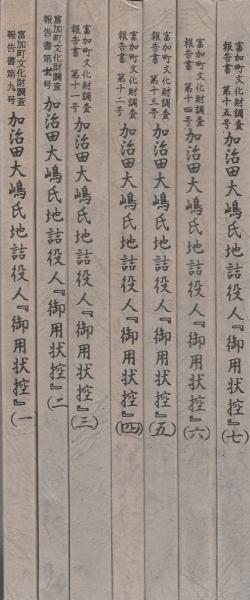 富加町文化財調査
報告書第九号
加治田大嶋氏地詰役人『御用状控』(一)
富加町文化財調査
報告書第十号
加治田大嶋氏地詰役人『御用状控』(二)
富加町文化財調査
報告書 第十一号
加治田大嶋氏地詰役人『御用状控』(三)
富加町文化財調査
報告書 第十二号
加治田大嶋氏地詰役人『御用状控』(四)
富加町文化財調査
報告書 第十三号
加治田大嶋氏地詰役人『御用状控』(五)
富加町文化財調査
報告書 第十四号
加治田大嶋氏地詰役人『御用状控』(六)
富加町文化財調査
報告書 第十五号
加治田大嶋氏地詰役人『御用状控』(七)